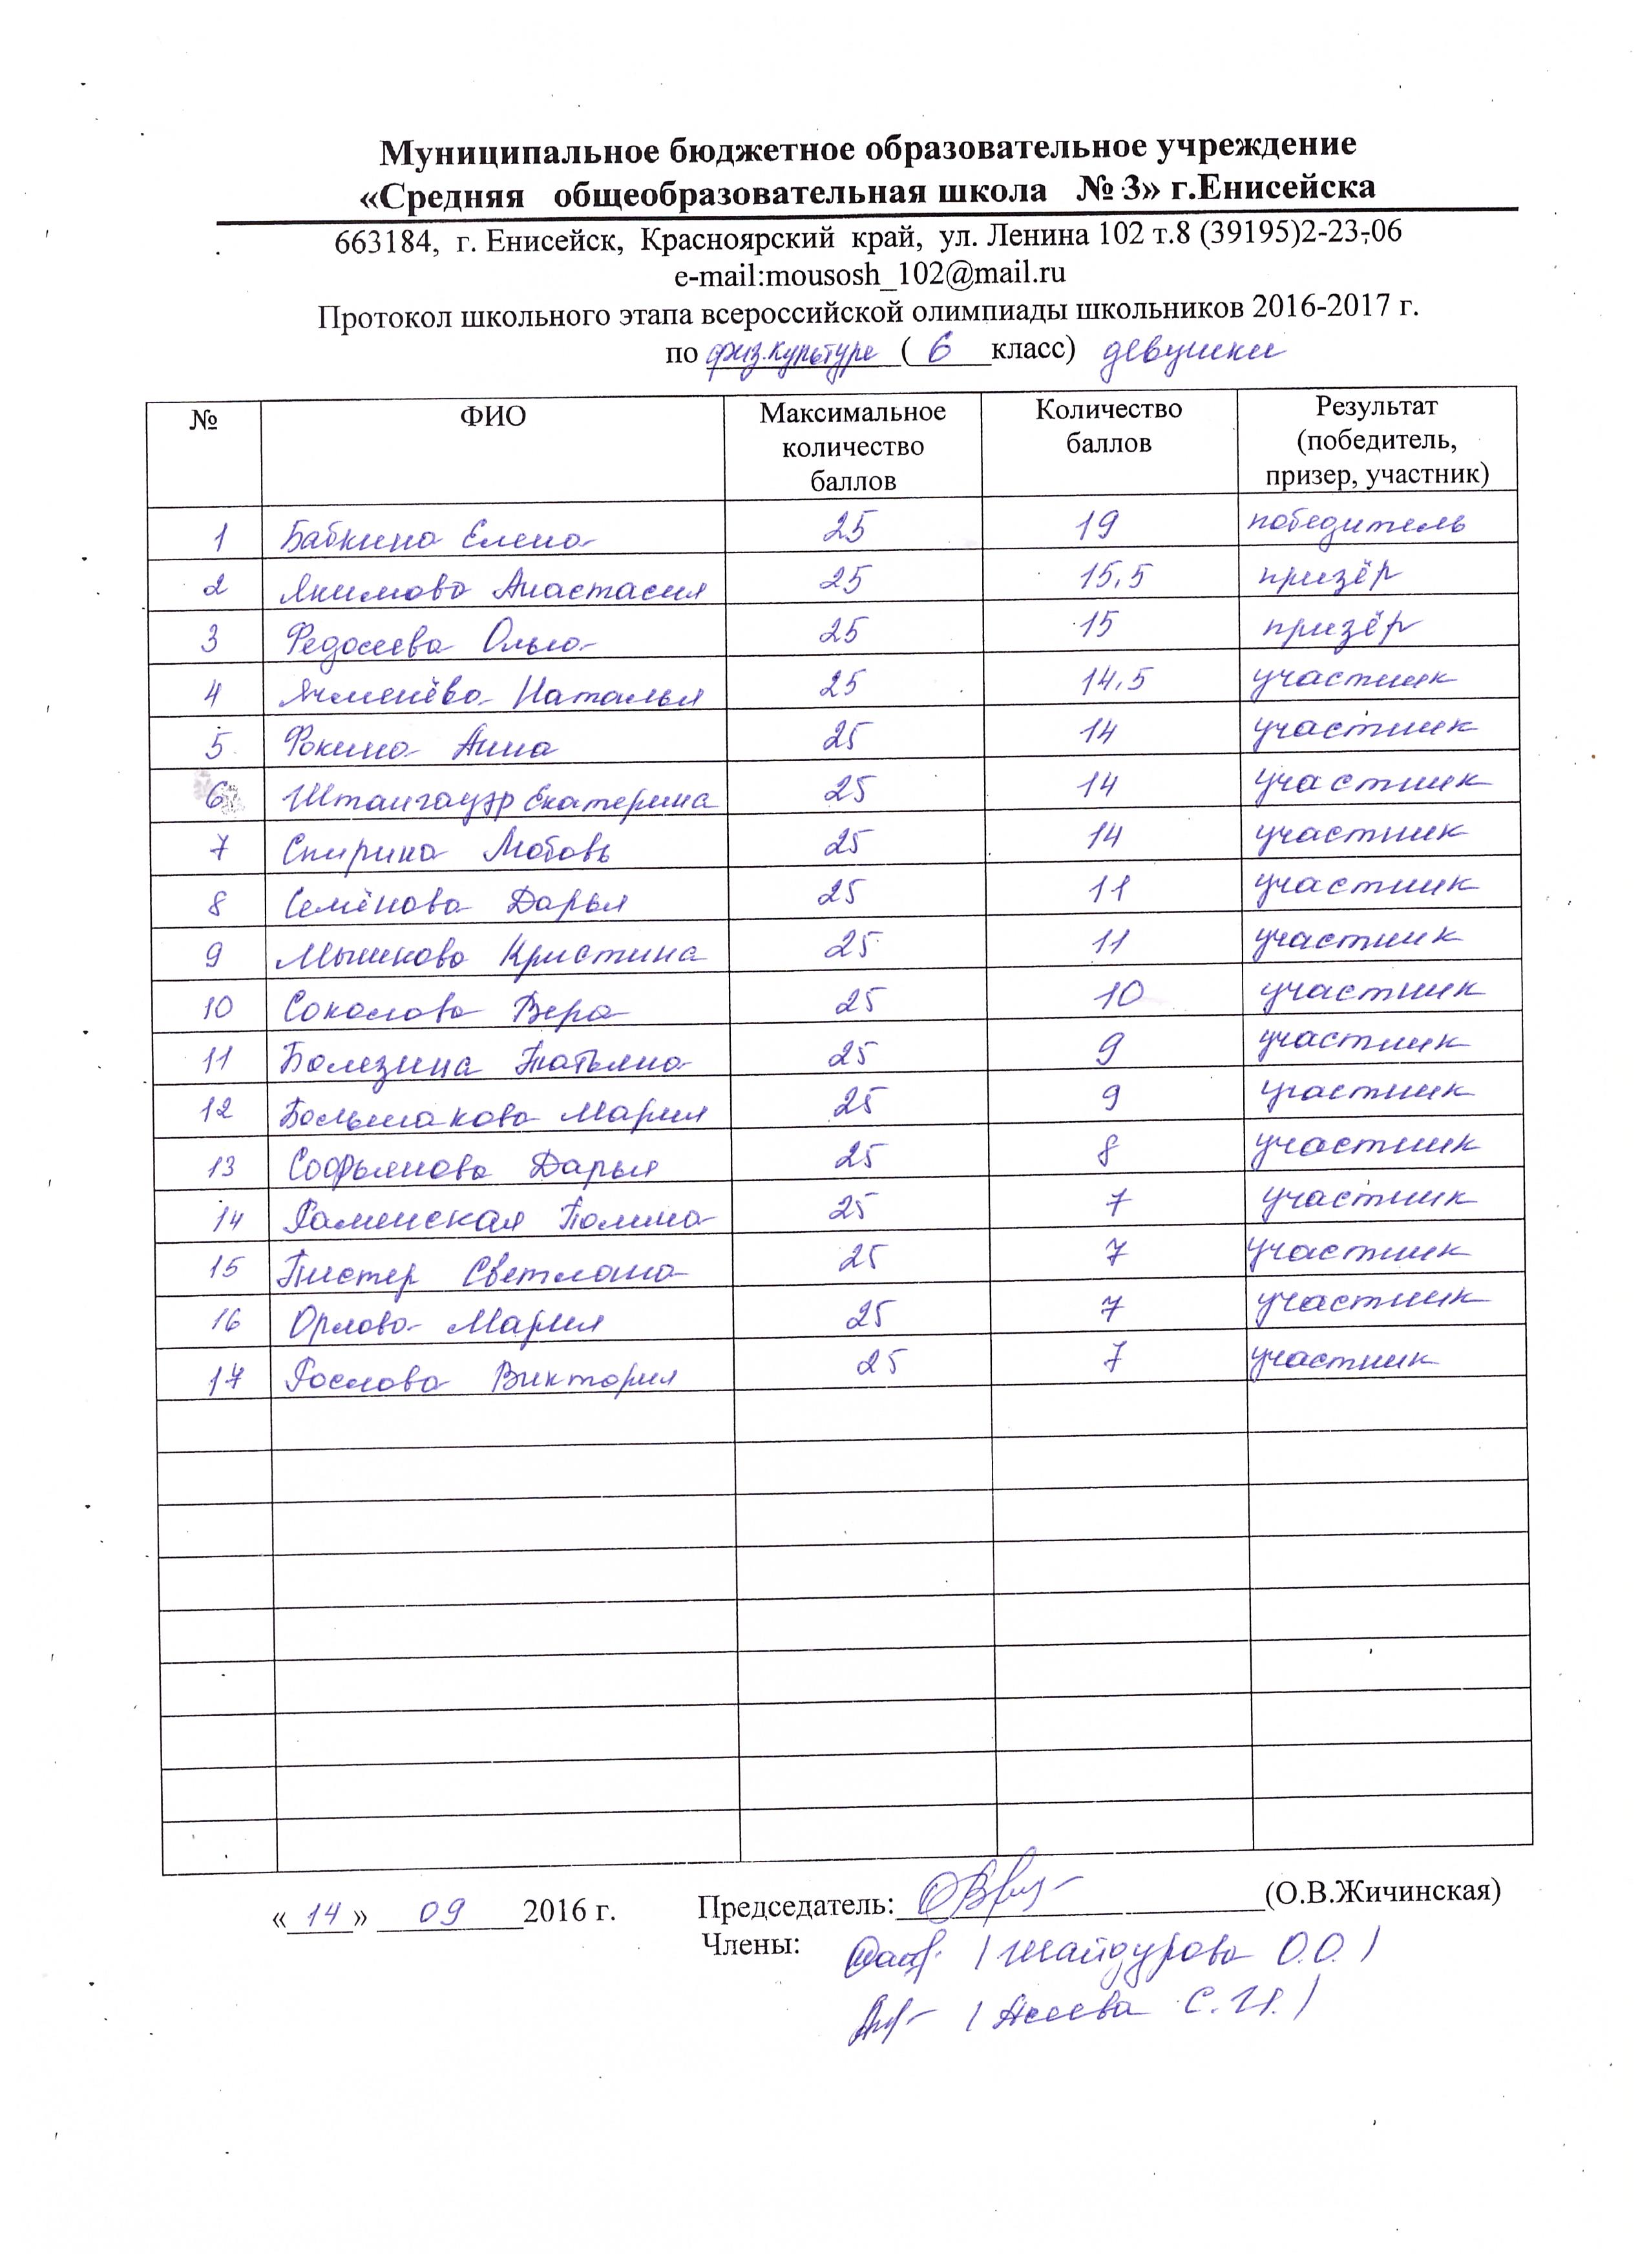 Муниципальное бюджетное образовательное учреждение
«Средняя общеобразовательная школа № 3» г.Енисейска
663184, г. Енисейск, Красноярский край, ул. Ленина 102 т.8 (39195)2-23-06
e-mail:mousosh_102@mail.ru
Протокол школьного этапа всероссийской олимпиады школьников 2016-2017 г.
по физ.культуре ( 6 класс) девушки
№ ФИО Максимальное количество баллов Количество баллов Результат (победитель, призер, участник)
1 Бабкина Елена 25 19 победитель
2 Якимова Анастасия 25 15,5 призёр
3 Федосеева Ольга 25 15 призёр
4 Ячменёва Наталья 25 14,5 участник
5 Фокина Анна 25 14 участник
6 Штангауэр Екатерина 25 14 участник
7 Спирина Любовь 25 14 участник
8 Семёнова Дарья 25 11 участник
9 Мышкова Кристина 25 11 участник
10 Соколова Вера 25 10 участник
11 Болезина Татьяна 25 9 участник
12 Большакова Мария 25 9 участник
13 Софьянова Дарья 25 8 участник
14 Раменская Полина 25 7 участник
15 Пистер Светлана 25 7 участник
16 Орлова Мария 25 7 участник
17 Рослова Виктория 25 7 участник
« 14 » 09 2016 г. Председатель: (О.В.Жичинская)
Члены: / Шайдурова О.О. /
/ Асеева С. /